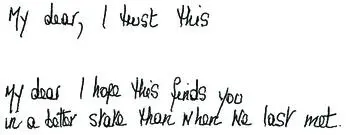 My dear, I trust this
My dear I hope this finds you
in a better state than when we last met.